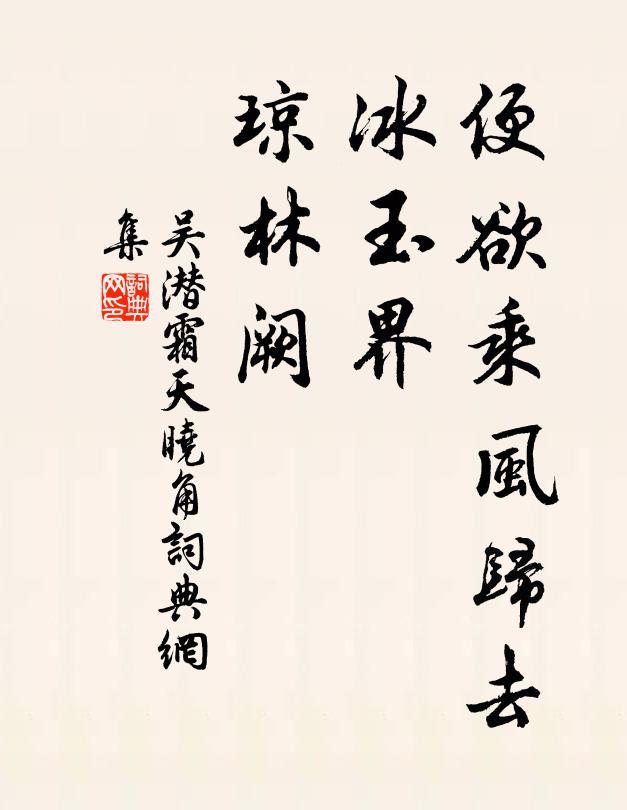 便欲乘風歸去
冰玉界
琼林闕
吴潜霜天曉角詞典網
集
詞典
网印